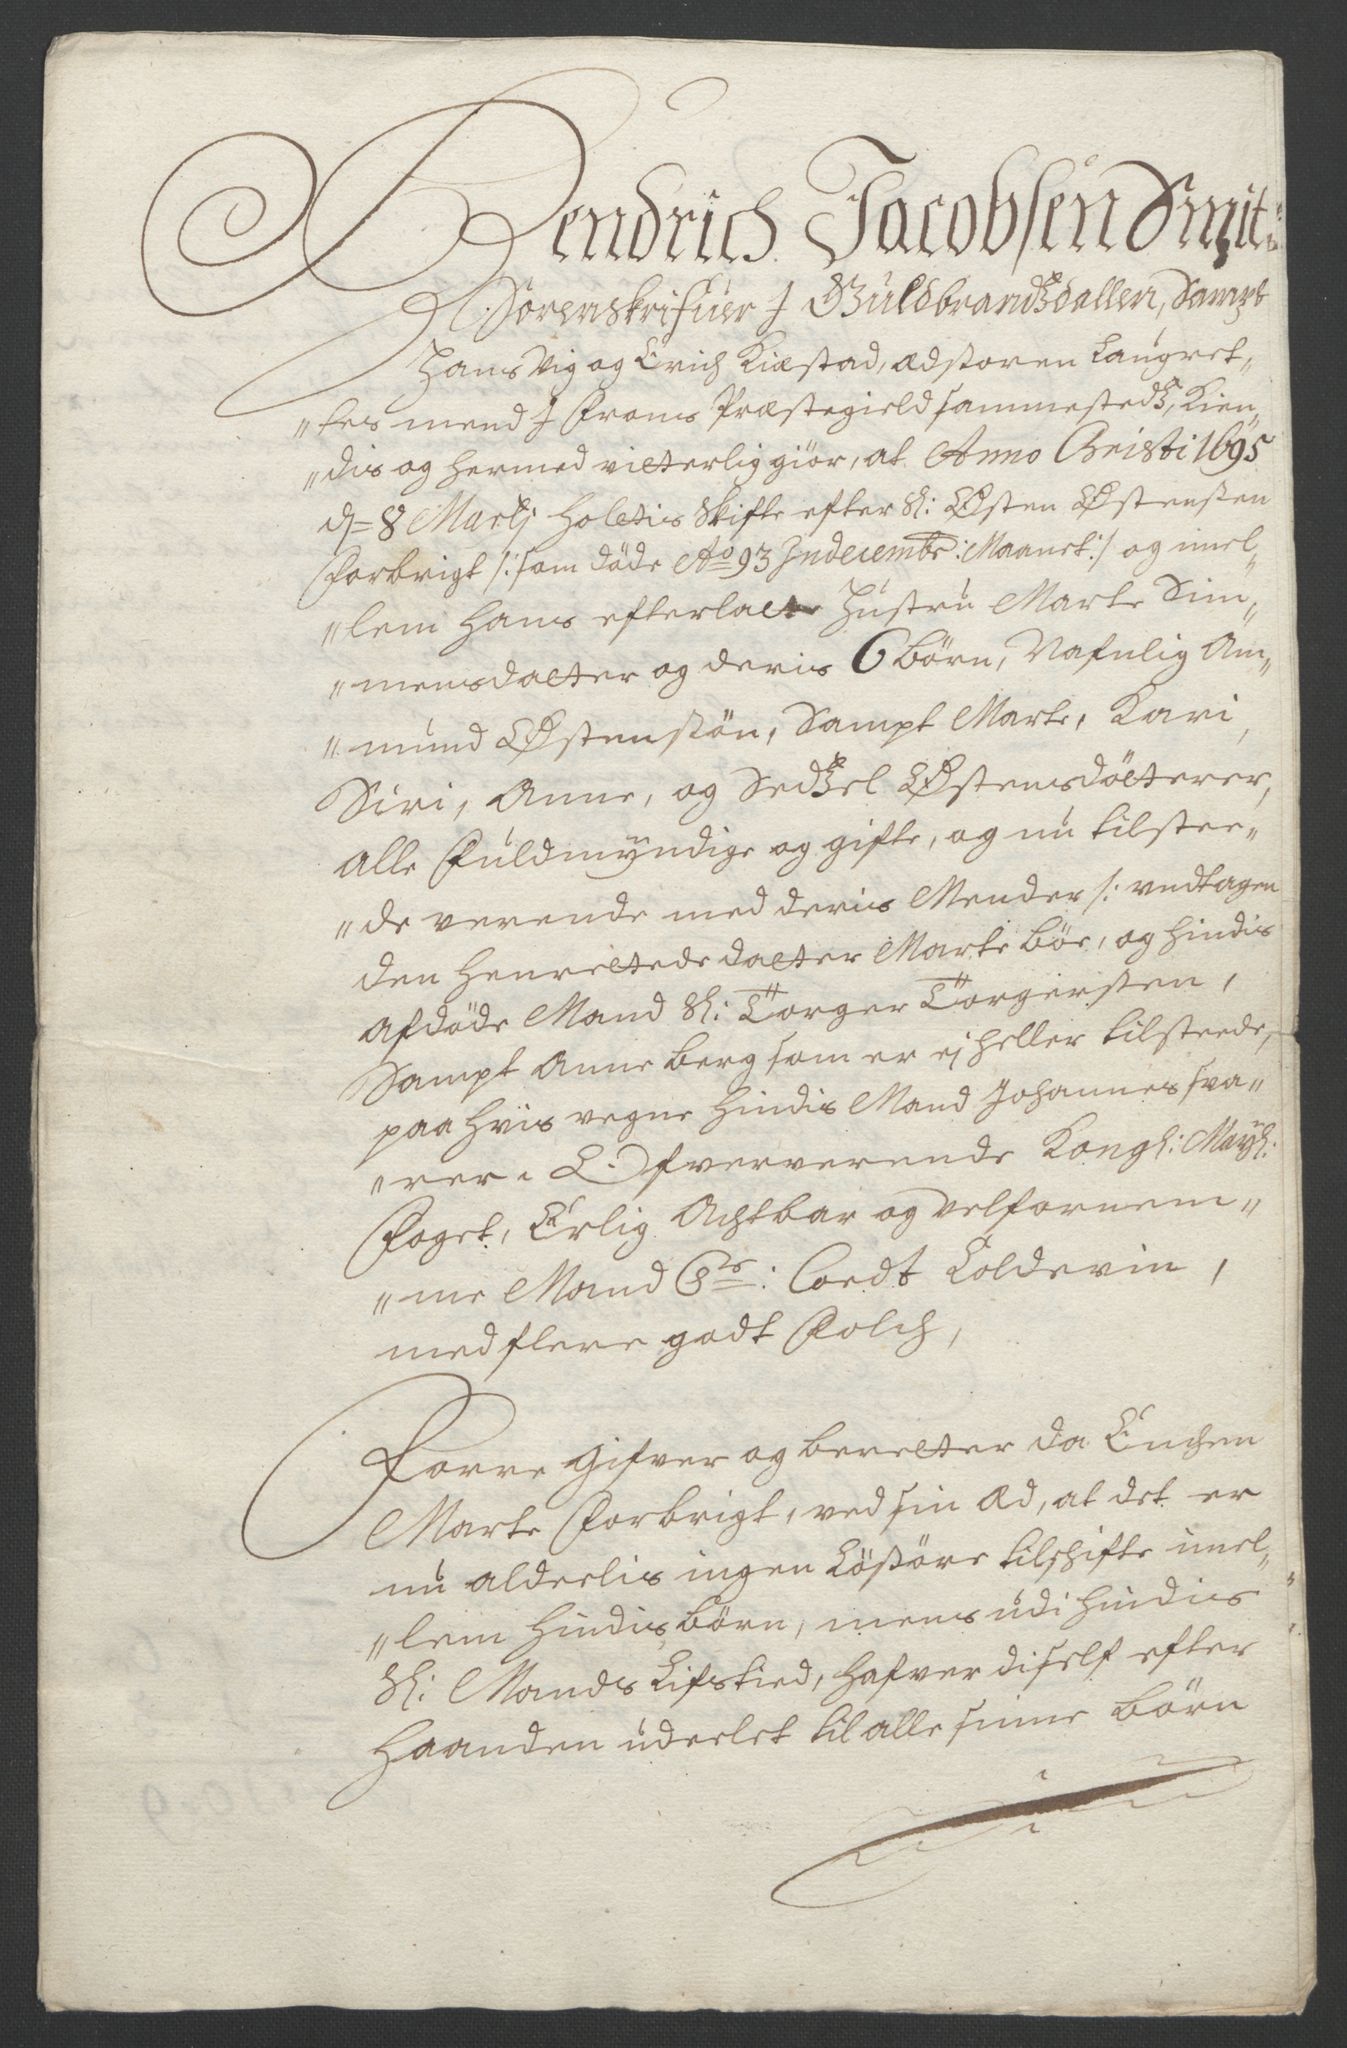 Hendrich Jacobsen Smit:
Sorenskrifuer J Guldbrandßdallen, Sampt
Hans Vig og Erich Kiæstad, ædsvoren Laugret„
„tes mend J Froms Præstegield sammestedß, Kien„
„dis og hermed vitterlig giør, at Anno Christi 1695
d= 8 Martj holtis Skifte efter Sl: Østen Østensen
Forbrigt /: som døde Ao 93 Jn decembr: Maanet:/ og imel„
„lem hans efterlatte Hustru Marte Sim„
„mensdatter og deris 6 børn, Nafnlig Am„
„mund Østensøn, Sampt Marte, Kari,
Siri, Anne, og Sedßel Østensdøtterer,
alle Fuldmyndige og gifte, og nu tilstee„
„de verende med deris Mender /: undtagen
den henrettede datter Marte Bøe, og hindis
afdøde Mand Sl: Torger Torgersen,
Sampt Anne berg som er ej heller tilstede,
paa hvis vegne hindis Mand Johannes sva„
„rer. Ofververende Kongl: Mayl:
Foget, Erlig Achtbar og velfornem„
„me Mand Sr: Cordt Coldevin,
med flere godt Folch,
Forre gifver og beretter da Enchen
Marte Forbrigt, ved sin æd, at det er
nu alderlis ingen Løsøre til skifte imel„
„lem hindis børn, mens udi hindis
Sl: Mands Lifstied, hafver di self efter
haanden udeelet til alle sinne børn